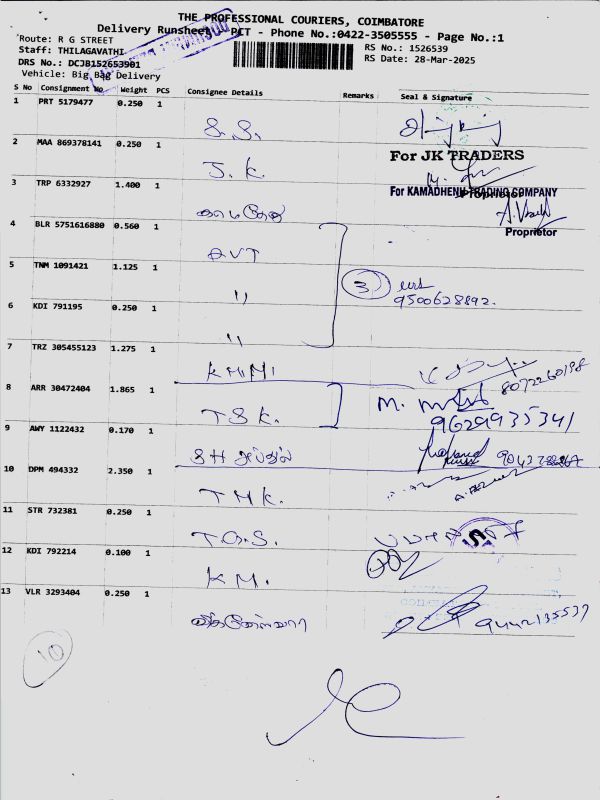 THE PROFESSIONAL COURIERS, COIMBATORE
Delivery Runsheet PCT - Phone No.:0422-3505555 - Page No.:1
Route: R G STREET
RS No.: 1526539
Staff: THILAGAVATHI
RS Date: 28-Mar-2025
DRS No.: DCJB152653901
Vehicle: Big Bag Delivery
S No Consignment No Weight PCS Consignee Details Remarks Seal & Signature
1 PRT 5179477 0.250 1
S. S.
2 MAA 869378141 0.250 1
For JK TRADERS
J. K.
3 TRP 6332927 1.400 1
For KAMADHENU TRADING COMPANY
Proprietor
காமதேனு
4 BLR 5751616880 0.560 1
Proprietor
AVT
5 TNM 1091421 1.125 1
"
3
9500628892.
6 KDI 791195 0.250 1
"
7 TRZ 305455123 1.275 1
KMMI
8072260198
8 ARR 30472404 1.865 1
TSK.
9629935341
9 AWY 1122432 0.170 1
SH அப்துல்
10 DPM 494332 2.350 1
TMK.
11 STR 732381 0.250 1
T.O.S.
12 KDI 792214 0.100 1
KM.
13 VLR 3293404 0.250 1
9442135537
10